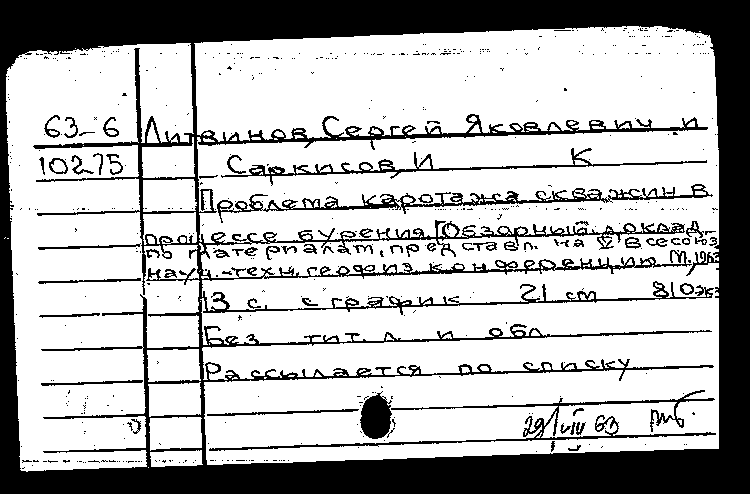 63-6 Литвинов, Сергей Яковлевич и
10275 Саркисов, И К
Проблема каротажа скважин в
процессе бурения [Обзорный доклад
по материалам, представл. на V Всесоюз
науч.-техн. геофиз. конференцию М, 1963
13 с. с график 21 см 810 экз
Без тит. л. и обл
Рассылается по списку
29/VIII 63